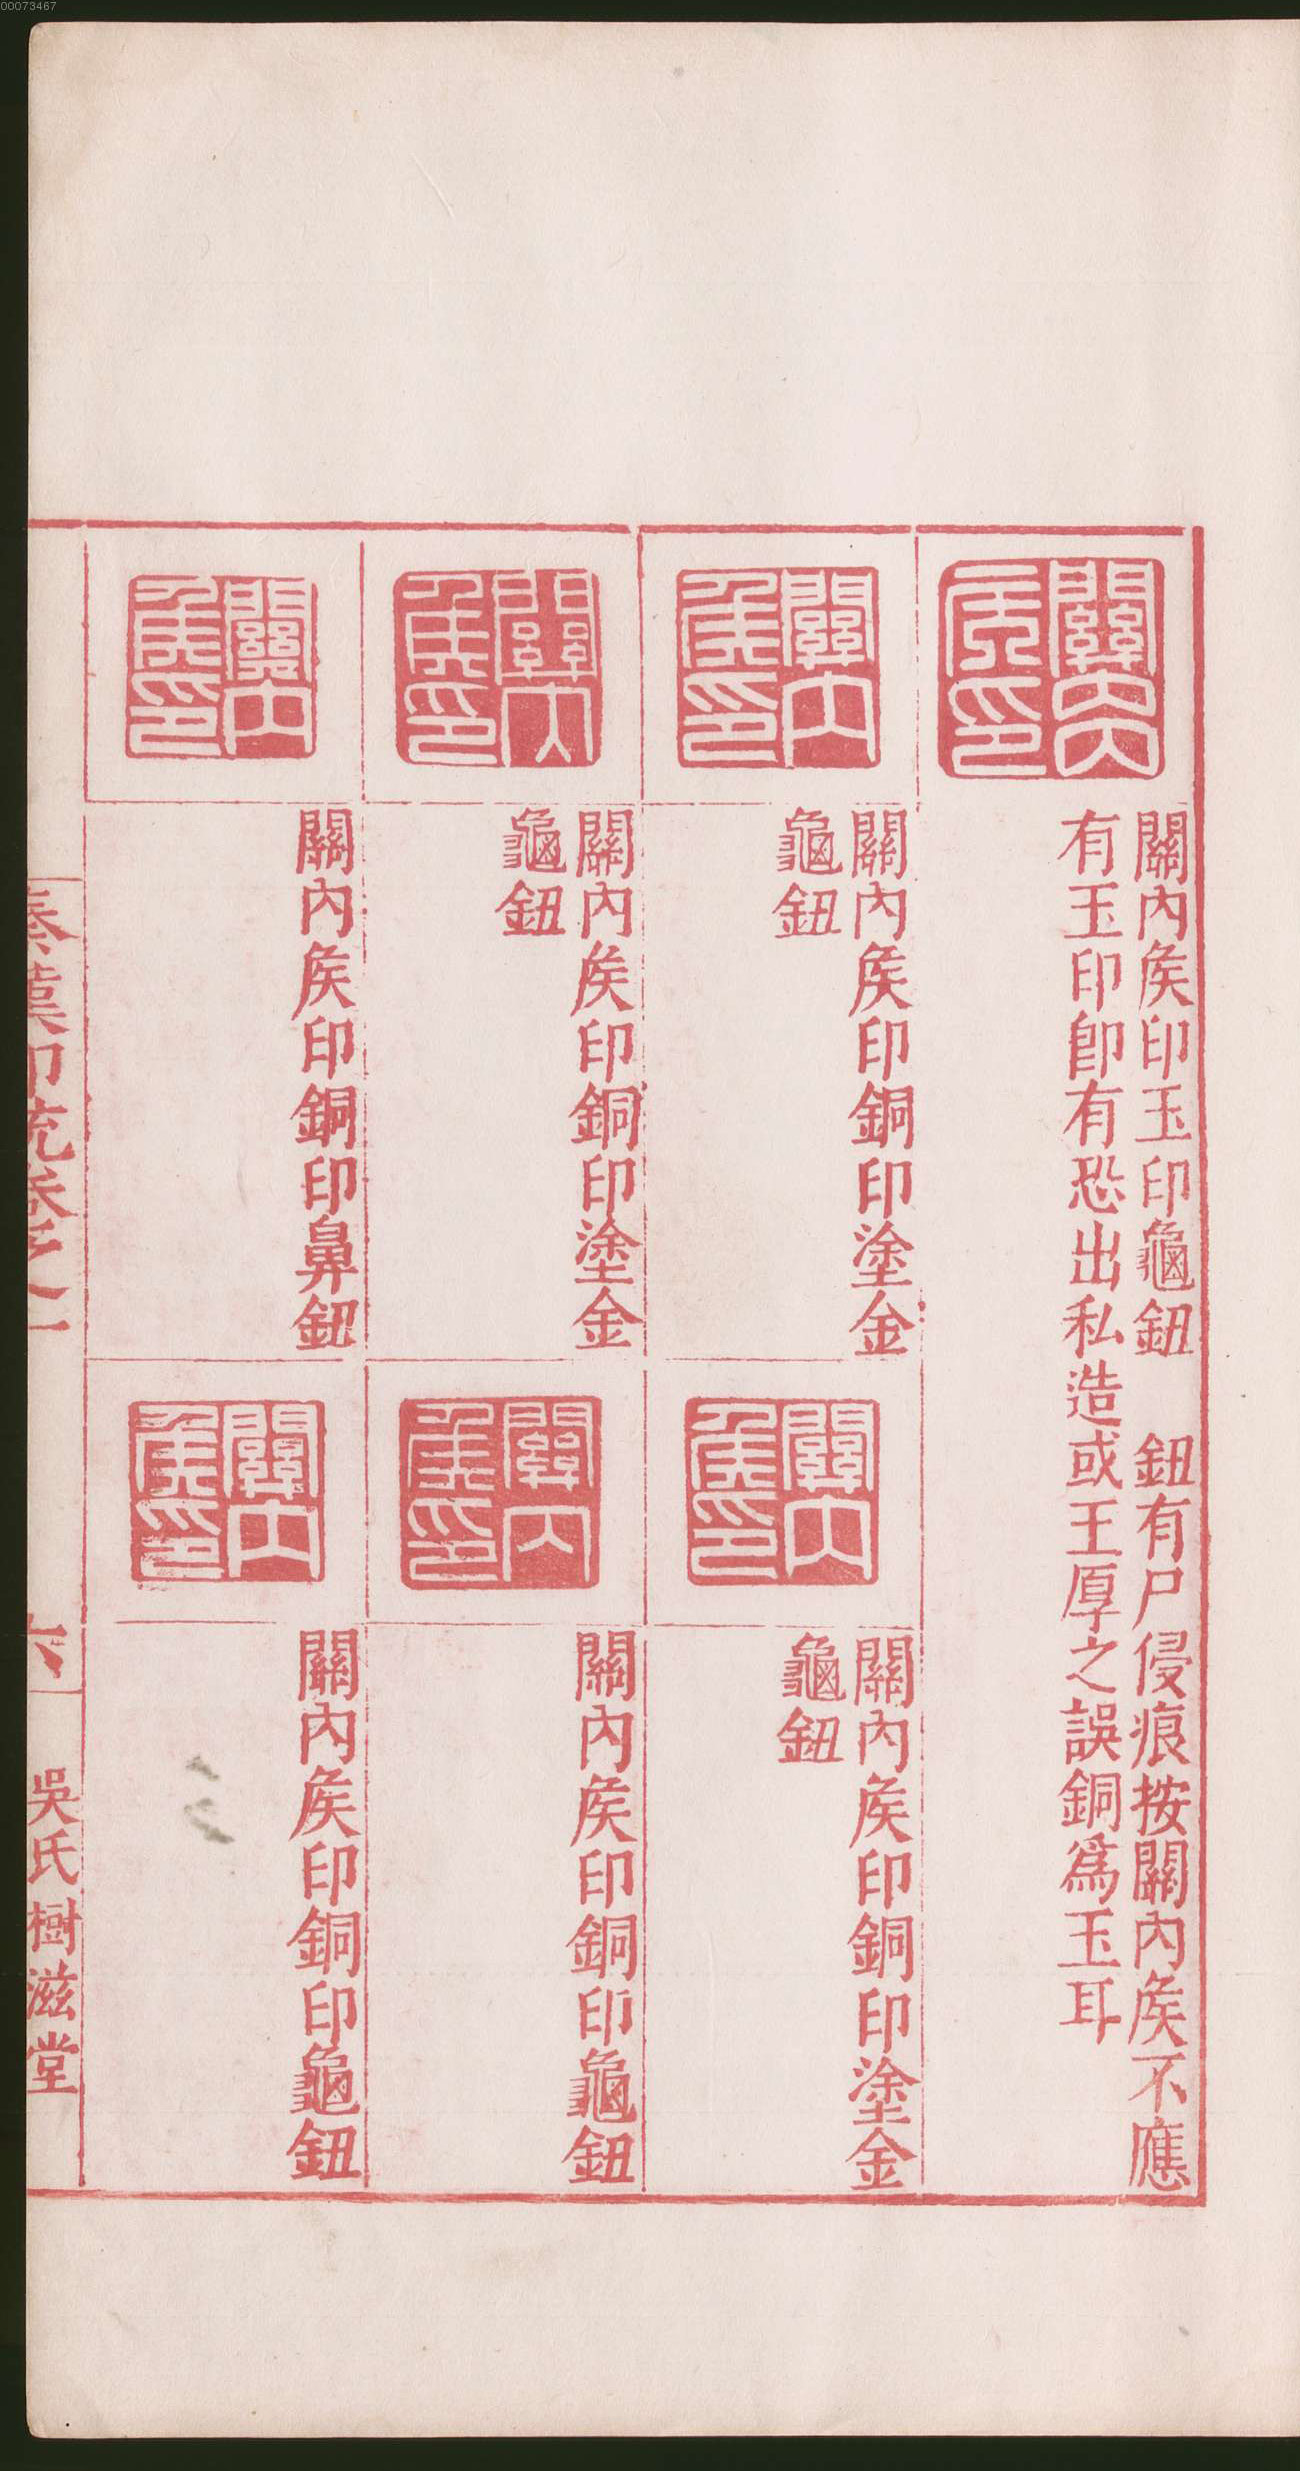 00073467
關內侯印
關內侯印玉印龜鈕　鈕有尸侵痕按關內侯不應
有玉印卽有恐出私造或王厚之誤銅爲玉耳
關內侯印
關內侯印銅印塗金
龜鈕
關內侯印
關內侯印銅印塗金
龜鈕
關內侯印
關內侯印銅印塗金
龜鈕
關內侯印
關內侯印銅印龜鈕
關內侯印
關內侯印銅印鼻鈕
關內侯印
關內侯印銅印龜鈕
秦漢印統卷之一
六
吳氏樹滋堂